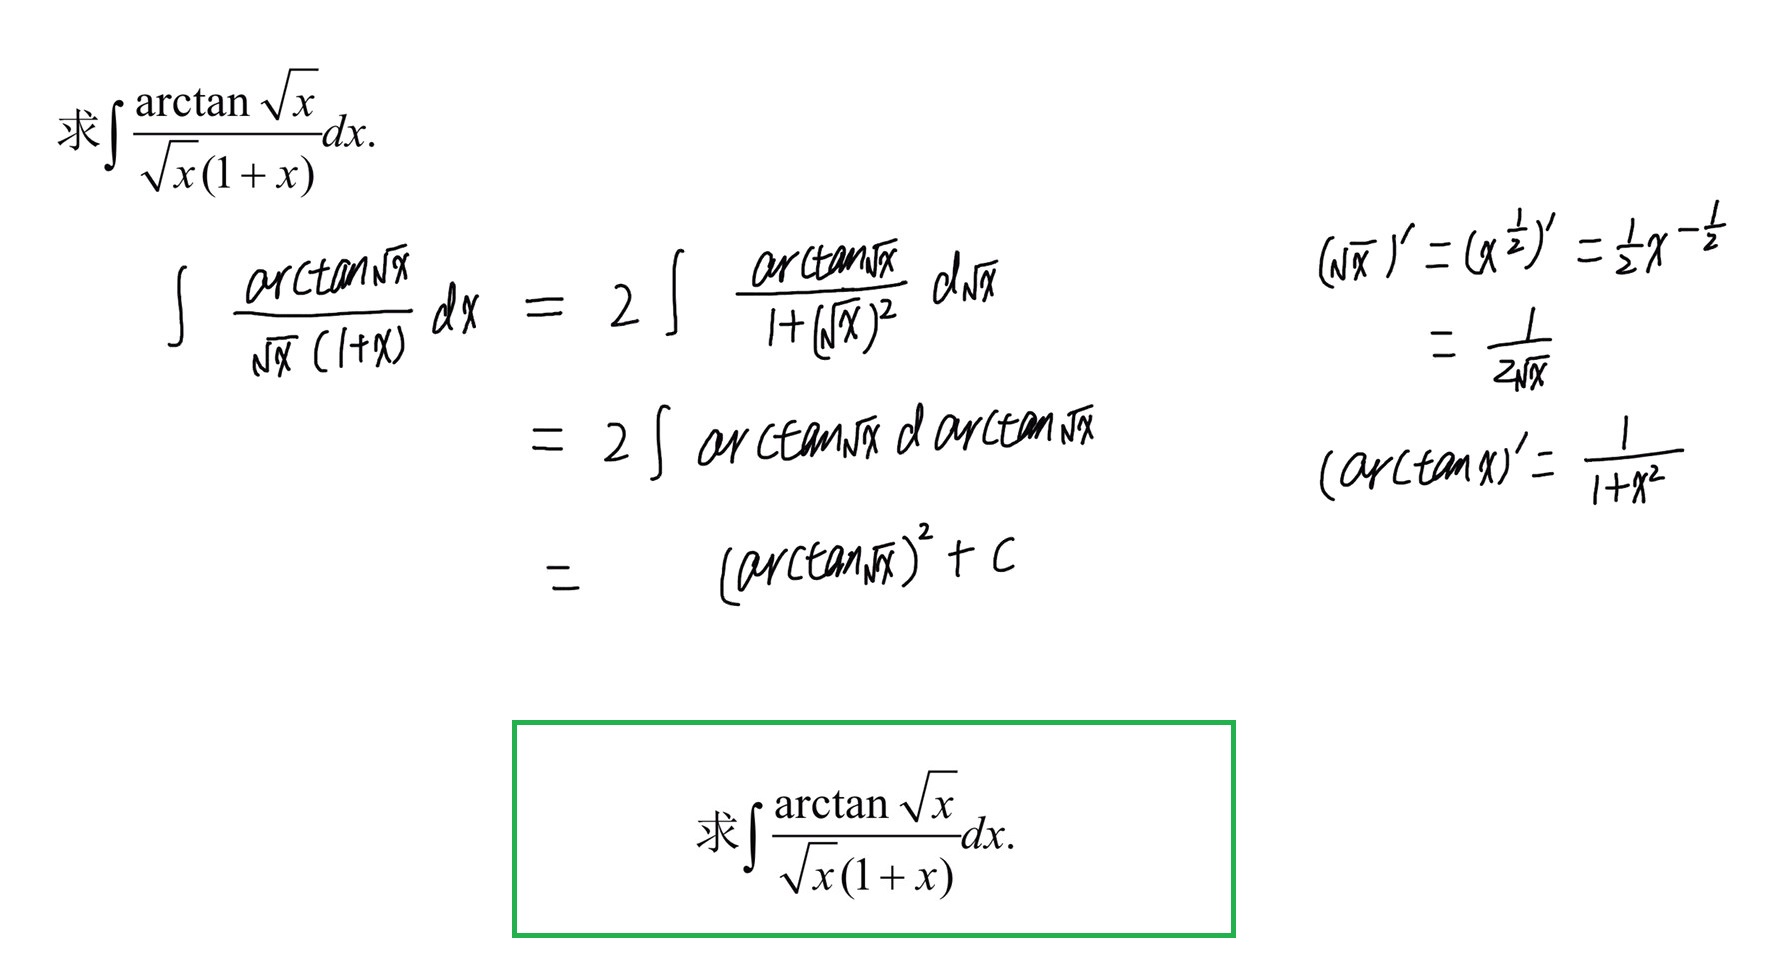 求∫ arctan √x / (√x(1 + x)) dx.
∫ arctan√x / (√x (1+x)) dx = 2 ∫ arctan√x / (1+(√x)²) d√x
= 2 ∫ arctan√x d arctan√x
= (arctan√x)² + C
(√x)′ = (x^{1/2})′ = 1/2 x^{-1/2}
= 1/(2√x)
(arctan x)′ = 1/(1+x²)
求∫ arctan √x / (√x(1 + x)) dx.